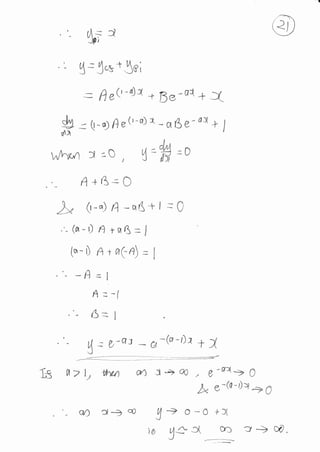 (21)
∴ y_pi = x
∴ y = y_cs + y_pi
= Ae^((1-a)x) + Be^(-ax) + x
dy/dx = (1-a)Ae^((1-a)x) - aBe^(-ax) + 1
When x = 0, y = dy/dx = 0
∴ A + B = 0
& (1-a)A - aB + 1 = 0
∴ (a-1)A + aB = 1
(a-1)A + a(-A) = 1
∴ -A = 1
A = -1
∴ B = 1
∴ y = e^(-ax) - e^(-(a-1)x) + x
If a > 1, then as x → ∞, e^(-ax) → 0
& e^(-(a-1)x) → 0
∴ as x → ∞ y → 0 - 0 + x
ie y ≃ x as x → ∞.